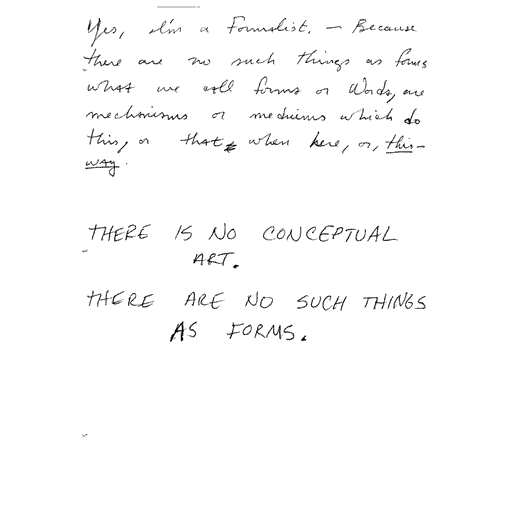 Yes, I'm a Formalist. — Because
there are no such things as forms
what we call forms or Words, are
mechanisms or mediums which do
this, or that, when here, or, this-
way.
THERE IS NO CONCEPTUAL
ART.
THERE ARE NO SUCH THINGS
AS FORMS.